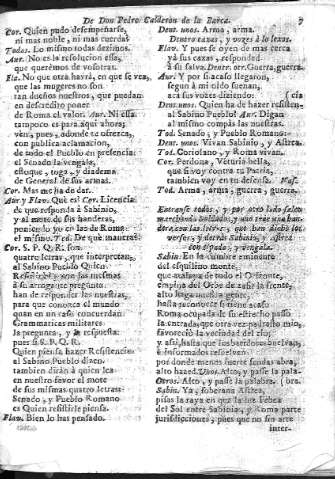 De Don Pedro Calderon de la Barca. 7
Cor. Quien pudo desempeñarse,
ni mas noble, ni mas cuerda?
Todos. Lo mismo todas dezimos.
Aur. No es la resolucion essa,
que queremos de vosotras.
Fla. No que otra havrà, en que se vea,
que las mugeres no son
tan dueños nuestros, que puedan
en descredito poner
de Roma el valor. Aur. Ni essa
tampoco es para aqui ahora;
ven, pues, adonde te ofrezca,
con publica aclamacion,
de todo el Pueblo en presencia
el Senado la vengala,
estoque, toga, y diadema
de General de sus armas.
Cor. Mas me ha de dar.
Aur. y Flav. Què es? Cor. Licencia
de que responda à Sabinio,
y al mote de sus banderas,
poniendo yo en las de Roma
el mismo. Tod. De què manera?
Cor. S. P. Q. R. son
quatro letras, que interpretan,
al Sabino Pueblo Quien
Resistirà? y son las mesmas
à su arrogante pregunto
han de responder las nuestras,
para que conozca el mundo
quan en un caso concuerdan
Grammaticas militares
la pregunta, y la respuesta:
pues si S. P. Q. R.
Quien piensa hazer Resistencia
al Sabino Pueblo dizen,
tambien diràn à quien lea
en nuestro favor el mote
de sus mismas quatro letras:
Senado, y Pueblo Romano
es Quien resistirle piensa.
Flav. Bien lo has pensado.
Dent. unos. Arma, arma.
Dentro caxas, y vozes à lo lexos.
Flav. Y pues se oyen de mas cerca
yà sus caxas, responded
à su salva. Dentr. otr. Guerra, guerra.
Aur. Y por si acaso llegaron,
segun à mi oido suenan,
acà sus vozes diziendo: (cia
Dent. unos. Quien ha de hazer resisten-
al Sabino Pueblo? Aur. Digan
al mismo compàs las nuestras.
Tod. Senado, y Pueblo Romano.
Dent. unos. Vivan Sabinio, y Astrea.
Tod. Coriolano, y Roma vivan.
Cor. Perdona, Veturia bella,
que si voy contra tu Patria,
tambien voy en tu defensa. Vase.
Tod. Arma, arma, guerra, guerra.
Entranse todos, y por otro lado salen
marchando soldados, y uno trae una ban-
dera con las letras, que han dicho los
versos, y detràs Sabinio, y Astrea
con espada, y vengala.
Sabin. En la cumbre eminente
del esquilino monte,
que atalaya de todo el Oriente,
empina del Orbe de zafir la frente,
alto haga nuestra gente,
hasta reconocer si tiene acaso
Roma ocupada de su estrecho passo
la entrada, que otra vez palestro mio,
favoreciò la vecindad del rio;
y assi, hasta que los batidores buelvan,
è informados resuelvan
por donde menos fuerte sendas abra,
alto hazed. Unos. Alto, y passe la pala-
Otros. Alto, y passe la palabra. (bra.
Sabin. Ya, soberana Astrea,
pisas la raya en que la luz Febea
del Sol entre Sabinia, y Roma parte
jurisdiciones, pues que no sin arte
inter-